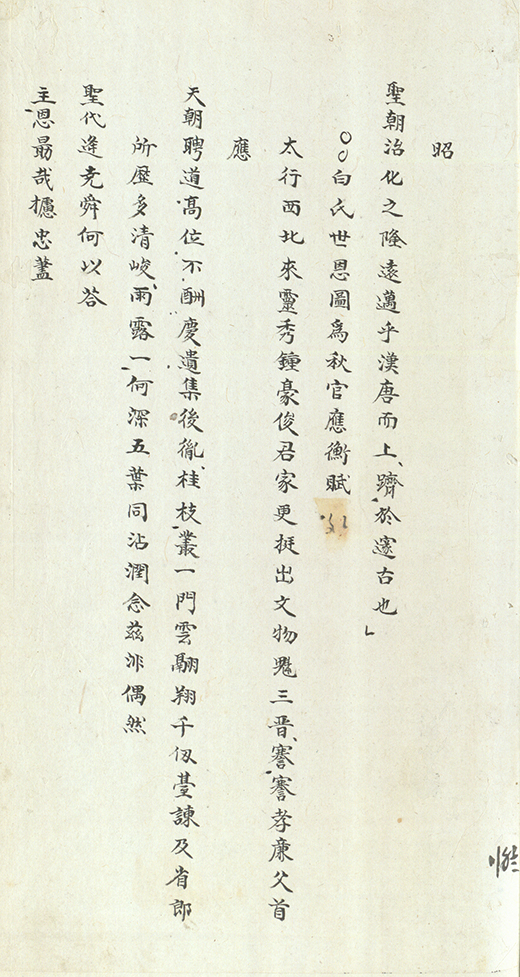 昭
聖朝治化之隆遠邁乎漢唐而上躋於邃古也
白氏世恩圖爲秋官應衡賦
太行西北來靈秀鍾豪俊君家更挺出文物冠三晋謇謇孝廉父首
應
天朝聘道高位不酬慶遺集後胤桂枝叢一門雲翮翔千仭臺諫及省郎
所歷多清峻雨露一何深五葉同沾潤念茲非偶然
聖代逢尭舜何以答
主恩勗哉攄忠藎